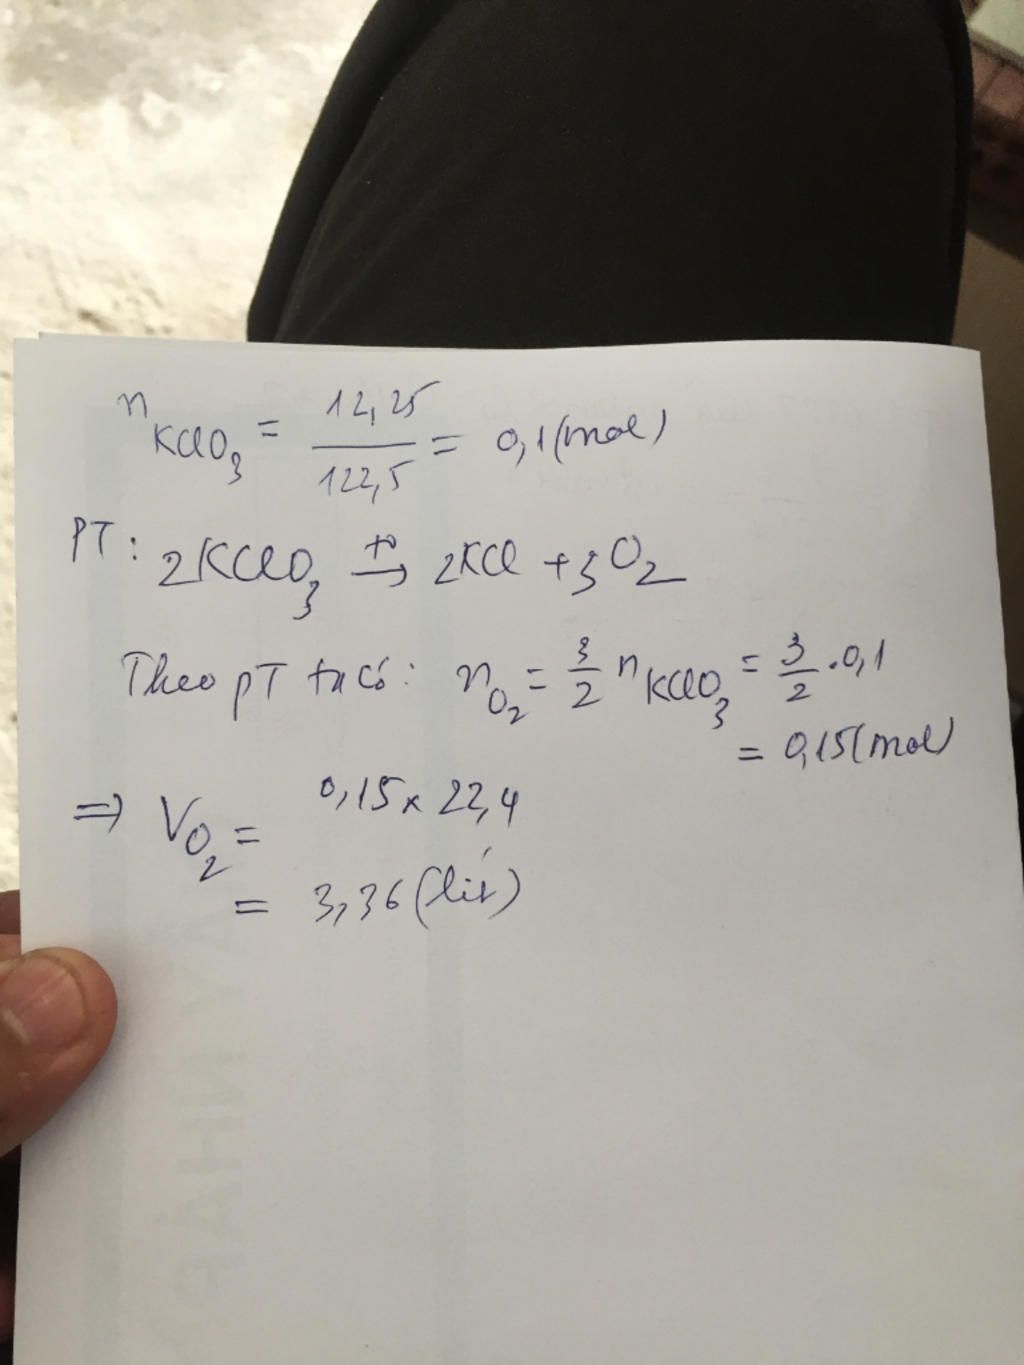 n KClO3 = 12,25 / 122,5 = 0,1 (mol)
PT: 2KClO3 t° → 2KCl + 3O2
Theo pT ta có: nO2 = 3/2 nKClO3 = 3/2 . 0,1
= 0,15 (mol)
=> VO2 = 0,15 x 22,4
= 3,36 (lít)